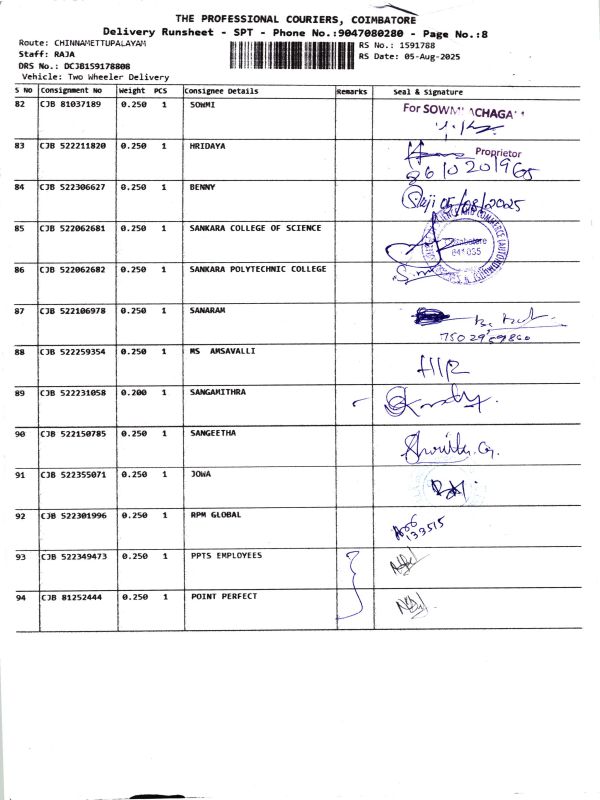 THE PROFESSIONAL COURIERS, COIMBATORE
Delivery Runsheet - SPT - Phone No.:9047080280 - Page No.:8
Route: CHINNAMETTUPALAYAM RS No.: 1591788
Staff: RAJA RS Date: 05-Aug-2025
DRS No.: DCJB159178808
Vehicle: Two Wheeler Delivery
S NO Consignment No Weight PCS Consignee Details Remarks Seal & Signature
82 CJB 81037189 0.250 1 SOWMI For SOWMI
83 CJB 522211820 0.250 1 HRIDAYA Proprietor
84 CJB 522306627 0.250 1 BENNY 05/08/2025
85 CJB 522062681 0.250 1 SANKARA COLLEGE OF SCIENCE
86 CJB 522062682 0.250 1 SANKARA POLYTECHNIC COLLEGE
87 CJB 522106978 0.250 1 SANARAM
88 CJB 522259354 0.250 1 MS AMSAVALLI
89 CJB 522231058 0.200 1 SANGAMITHRA
90 CJB 522150785 0.250 1 SANGEETHA
91 CJB 522355071 0.250 1 JOWA
92 CJB 522301996 0.250 1 RPM GLOBAL
133515
93 CJB 522349473 0.250 1 PPTS EMPLOYEES
94 CJB 81252444 0.250 1 POINT PERFECT